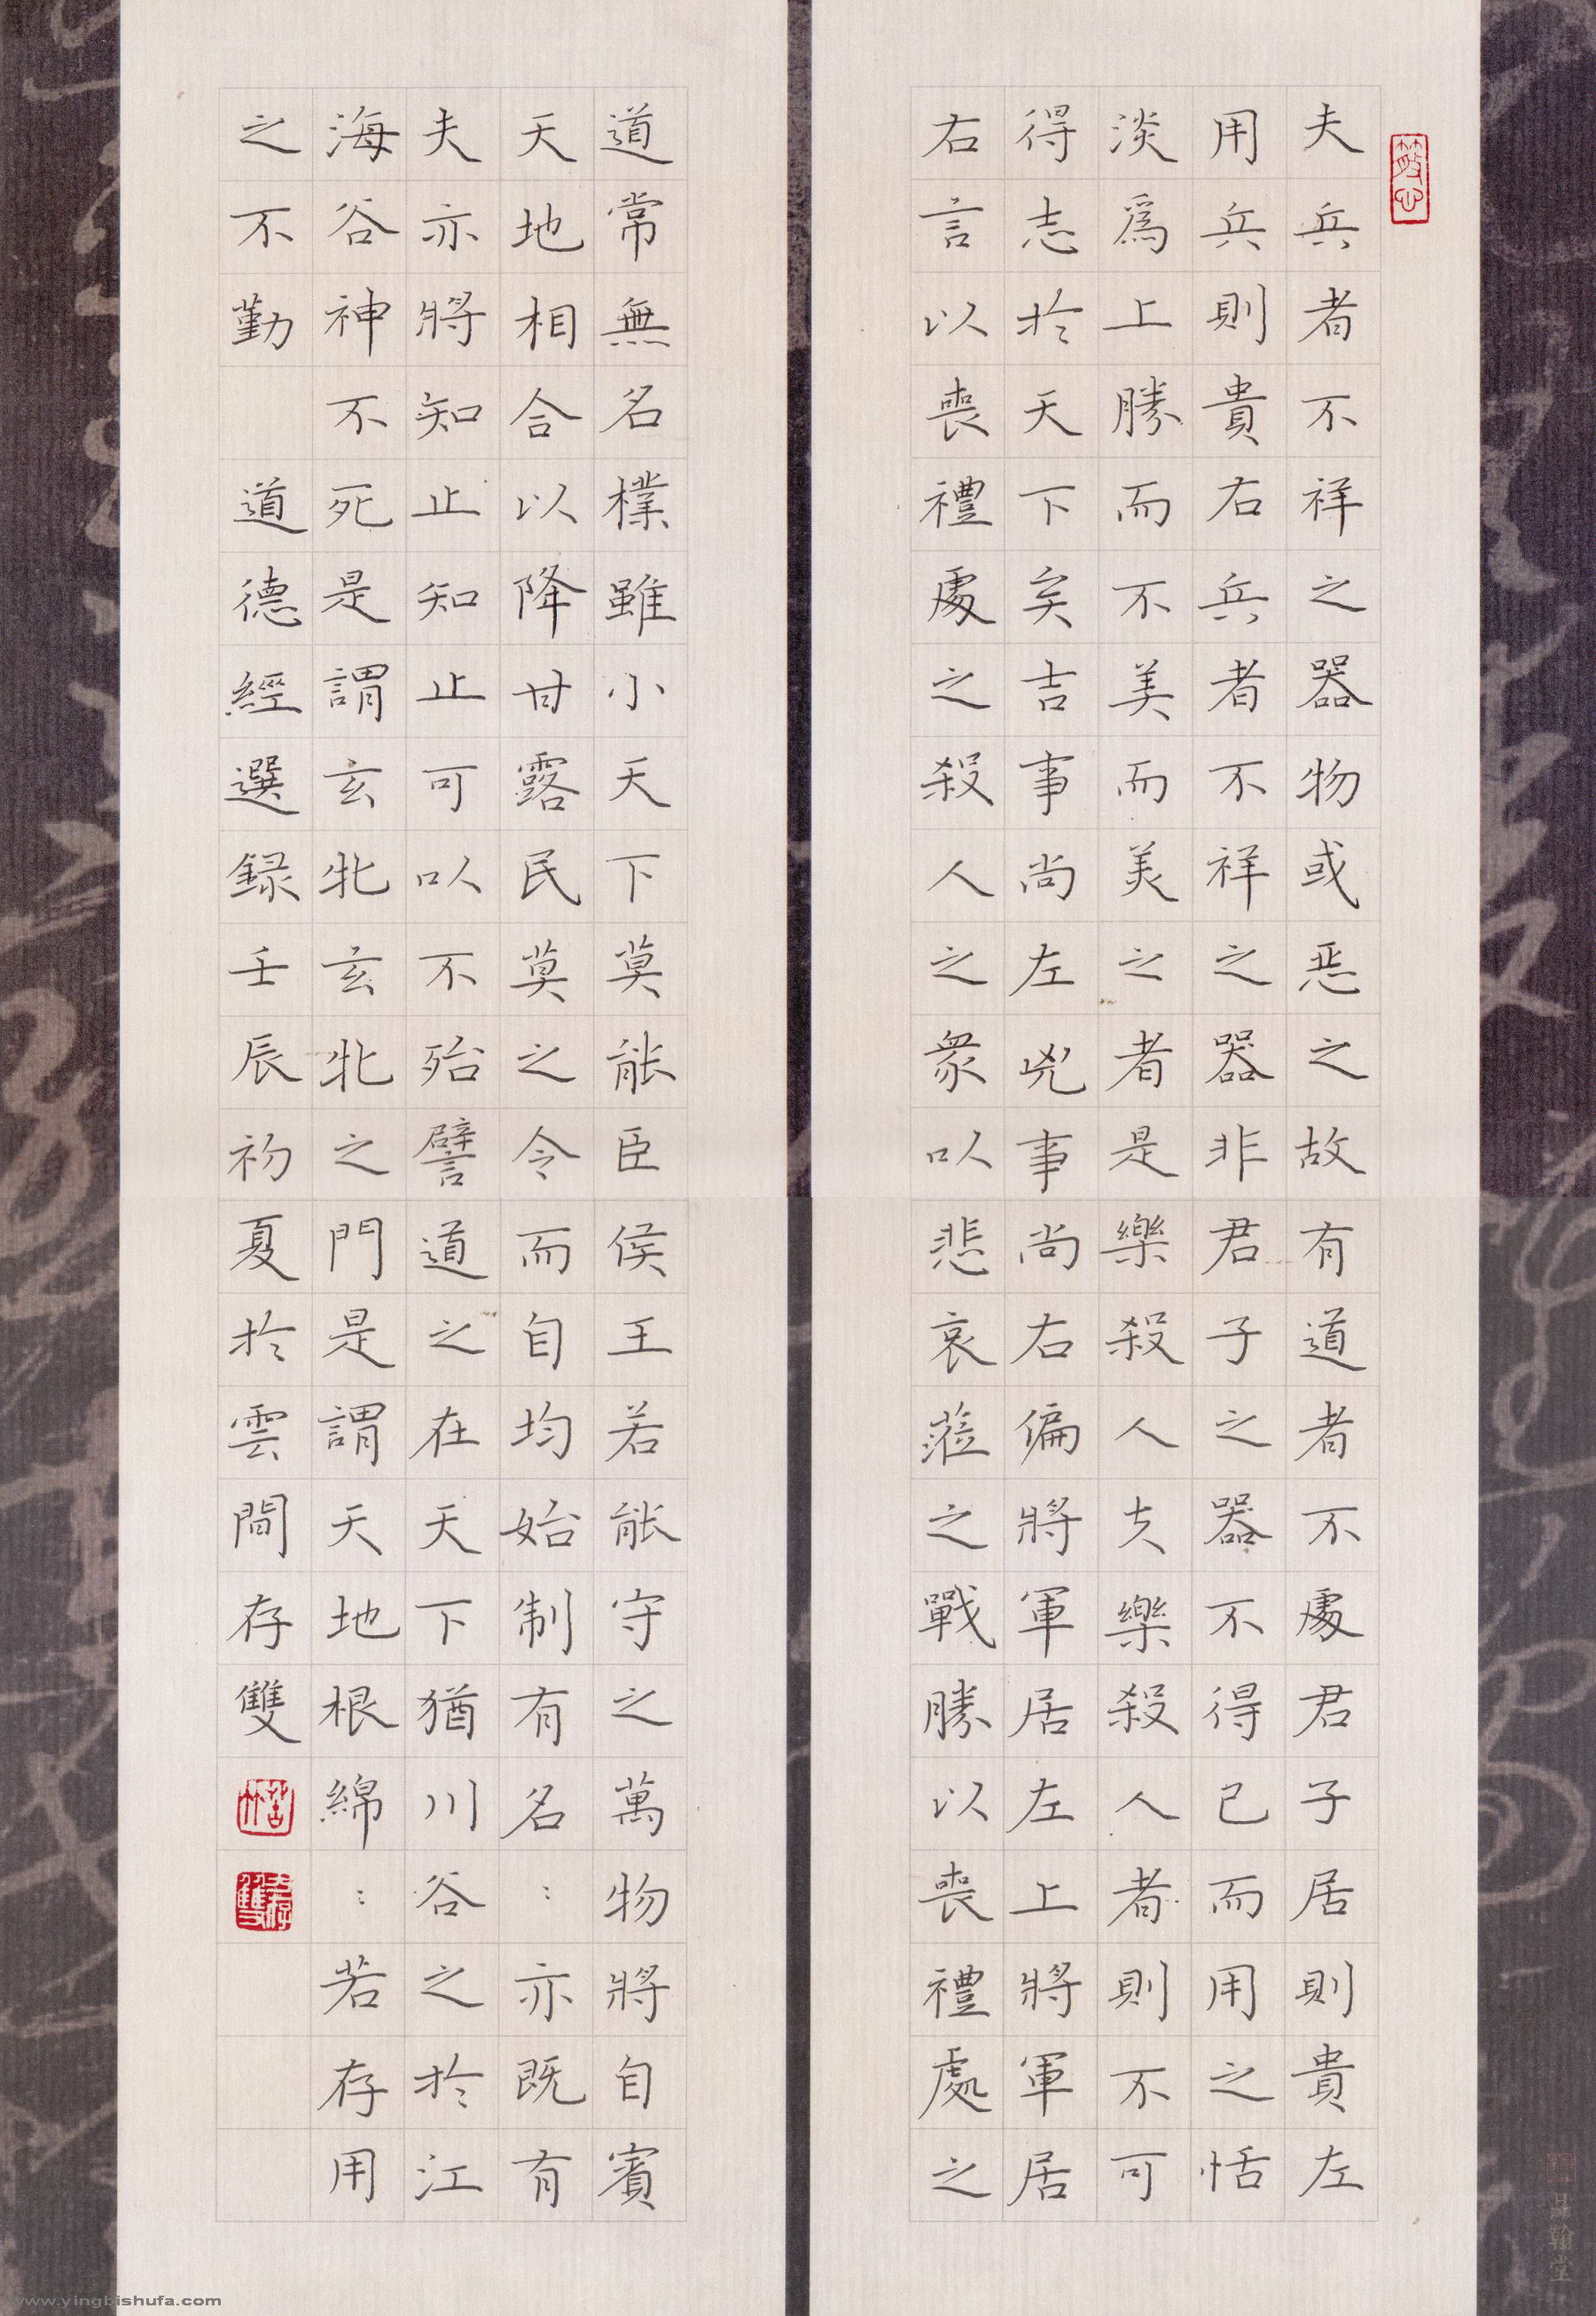 夫兵者不祥之器物或惡之故有道者不處君子居則貴左
用兵則貴右兵者不祥之器非君子之器不得已而用之恬
淡爲上勝而不美而美之者是樂殺人夫樂殺人者則不可
得志於天下矣吉事尚左兇事尚右偏將軍居左上將軍居
右言以喪禮處之殺人之衆以悲哀蒞之戰勝以喪禮處之
道常無名樸雖小天下莫能臣侯王若能守之萬物將自賓
天地相合以降甘露民莫之令而自均始制有名〻亦既有
夫亦將知止知止可以不殆譬道之在天下猶川谷之於江
海谷神不死是謂玄牝玄牝之門是謂天地根綿〻若存用
之不勤 道德經選録壬辰初夏於雲間存雙
品翰堂
www.yingbishufa.com